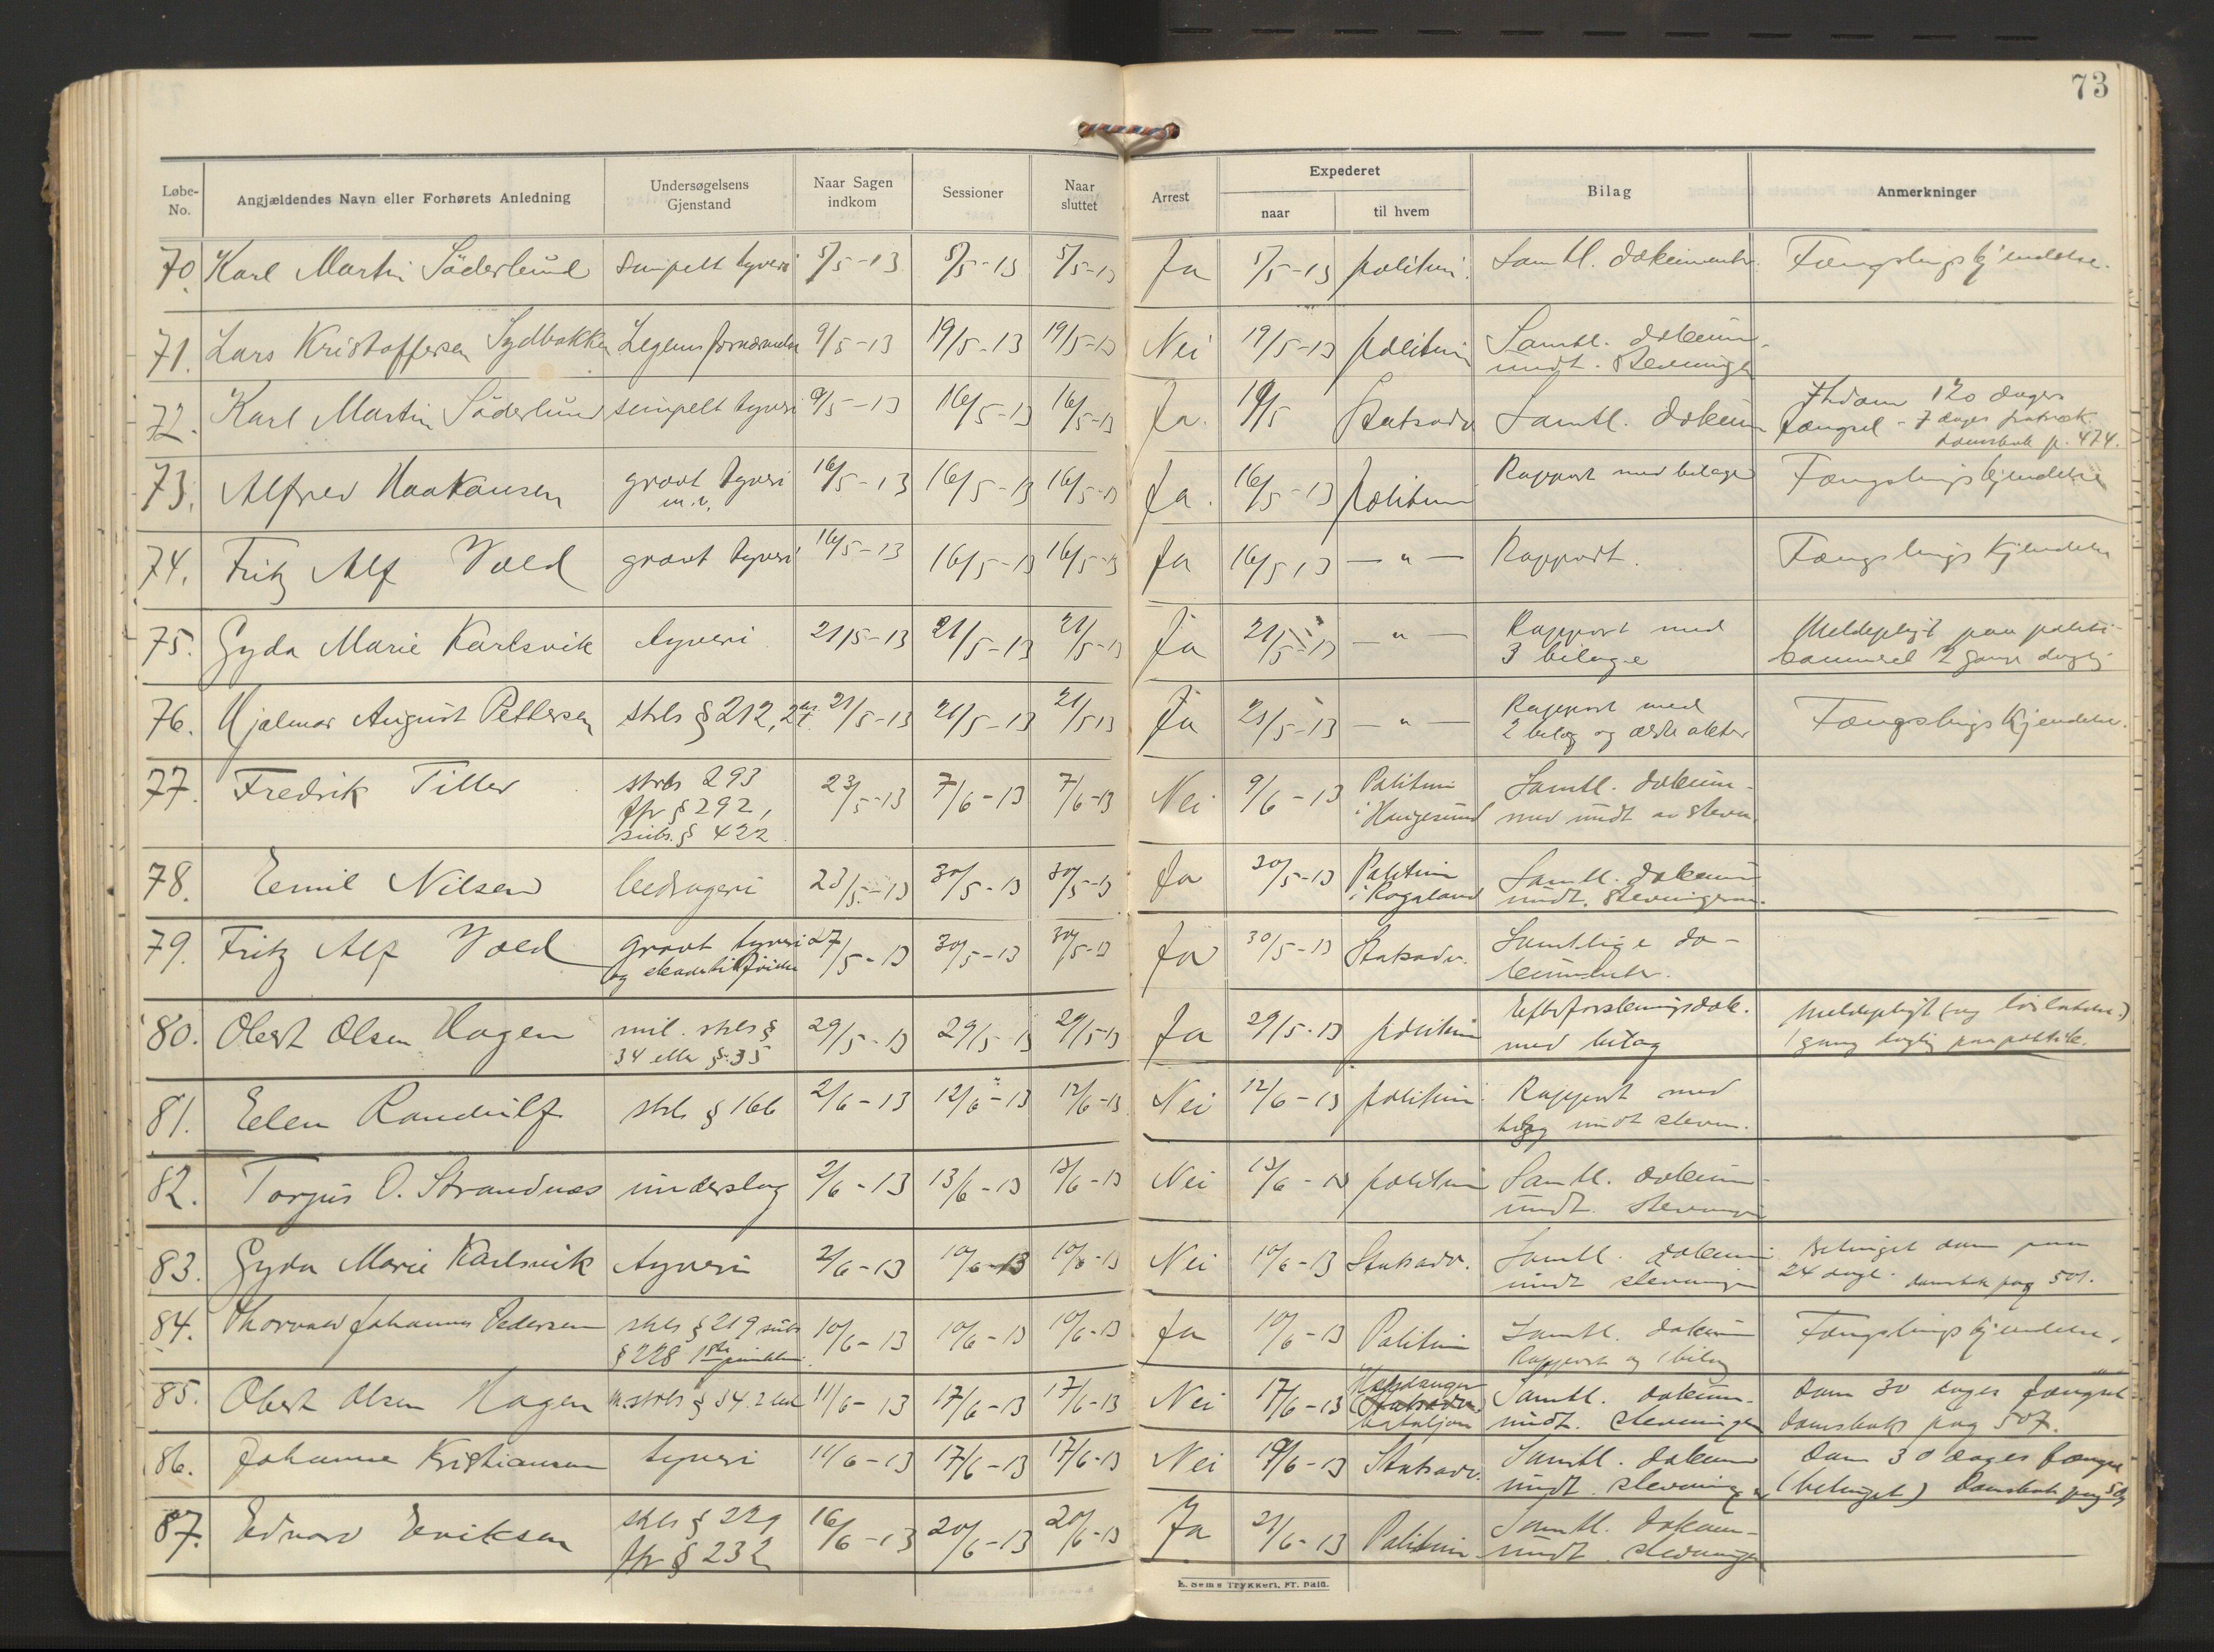 73
Løbe-No. Angjældendes Navn eller Forhørets Anledning Undersøgelsens Gjenstand Naar Sagen indkom Sessioner Naar sluttet Arrest Expederet naar til hvem Bilag Anmerkninger
70. Karl Martin Söderlund simpelt tyveri 5/5-13 5/5-13 5/5-13 Ja 5/5-13 politiet. Samtl. dokumenter. Fængslingskjendelse.
71. Lars Kristoffersen Sydbakken Legems fornærmelse 9/5-13 19/5-13 19/5-13 Nei 19/5-13 politiet Samtl. dokum.
undt. stevningen
72. Karl Martin Söderlund simpelt tyveri 9/5-13 16/5-13 16/5-13 Ja. 19/5 Statsadv Samtl. dokum dom 120 dages
fængsel - 7 dages fratræk.
domsbok p. 474.
73. Alfred Haakansen grovt tyveri 16/5-13 16/5-13 16/5-13 Ja. 16/5-13 politiet Rapport med bilage Fængslingskjendelse
m.v.
74. Fritz Alf Vold grovt tyveri 16/5-13 16/5-13 16/5-13 Ja 16/5 13 — " — Rapport. Fængslingskjendelse
75. Gyda Marie Karlsvik tyveri 21/5-13 21/5-13 21/5-13 Ja 21/5-13 — " — Rapport med Meldepligt paa politi-
3 bilage kammeret 2 gange daglig
76. Hjalmar August Pettersen strls § 212, 2 21/5-13 21/5-13 21/5 13 Ja 21/5-13 — " — Rapport med Fængslingskjendelse.
2 bilag og ældre akter
77. Fredrik Tiller strls 293 23/5-13 7/6-13 7/6-13 Nei 9/6-13 Politiet Samtl. dokum-
jfr § 292, i Haugesund med undt av stevn.
subs. § 422
78. Emil Nilsen bedrageri 23/5-13 30/5-13 30/5-13 Ja 30/5-13 Politiet Samtl. dokum
i Rogaland undt. stevningerne.
79. Fritz Alf Vold grovt tyveri 27/5-13 30/5-13 30/5-13 Ja 30/5-13 Statsadv. Samtlige do-
og skadetilføielse kumenter.
80. Obert Olsen Hagen mil. strls § 29/5-13 29/5-13 29/5-13 Ja 29/5-13 politiet Efterforskningsdok. Meldepligt (og løslatelse)
34 eller § 35 med bilag 1 gang daglig paa politik.
81. Elen Randulf strls § 166 2/6-13 12/6-13 12/6-13 Nei 12/6-13 politiet Rapport med
bilag undt stevn.
82. Torjus O. Strandnæs underslag 2/6-13 13/6-13 13/6-13 Nei 13/6-13 politiet Samtl. dokum-
undt. stevningen
83. Gyda Marie Karlsvik tyveri 2/6-13 10/6-13 10/6-13 Nei 10/6-13 Statsadv. Samtl. dokum Betinget dom paa
undt stevningen 24 dage. domsbok pag 501.
84. Thorvald Johannes Pedersen strls § 219 subs 10/6-13 10/6-13 10/6-13 Ja 10/6-13 Politiet Samtl. dokum Fængslingskjendelse.
§ 228 1ste punktum Rapport og 1 bilag
85. Obert Olsen Hagen m.strls § 34. 2 led 11/6-13 17/6-13 17/6-13 Nei 17/6-13 Hardanger Samtl. dokum. Dom 30 dages fængsel
bataljon undt. stevningen domsbok pag 507.
86. Johanne Kristiansen tyveri 11/6-13 17/6-13 17/6-13 Nei 19/6-13 Statsadv. Samtl. dokum Dom 30 dages fængsel
undt. stevningen (betinget) Domsbok pag
87. Edvard Eriksen strls § 229 16/6-13 20/6-13 20/6-13 Ja 21/6-13 Politiet Samtl. dokum-
jfr § 232 undt. stevningen
E. Sems Trykkeri, Fr. hald.